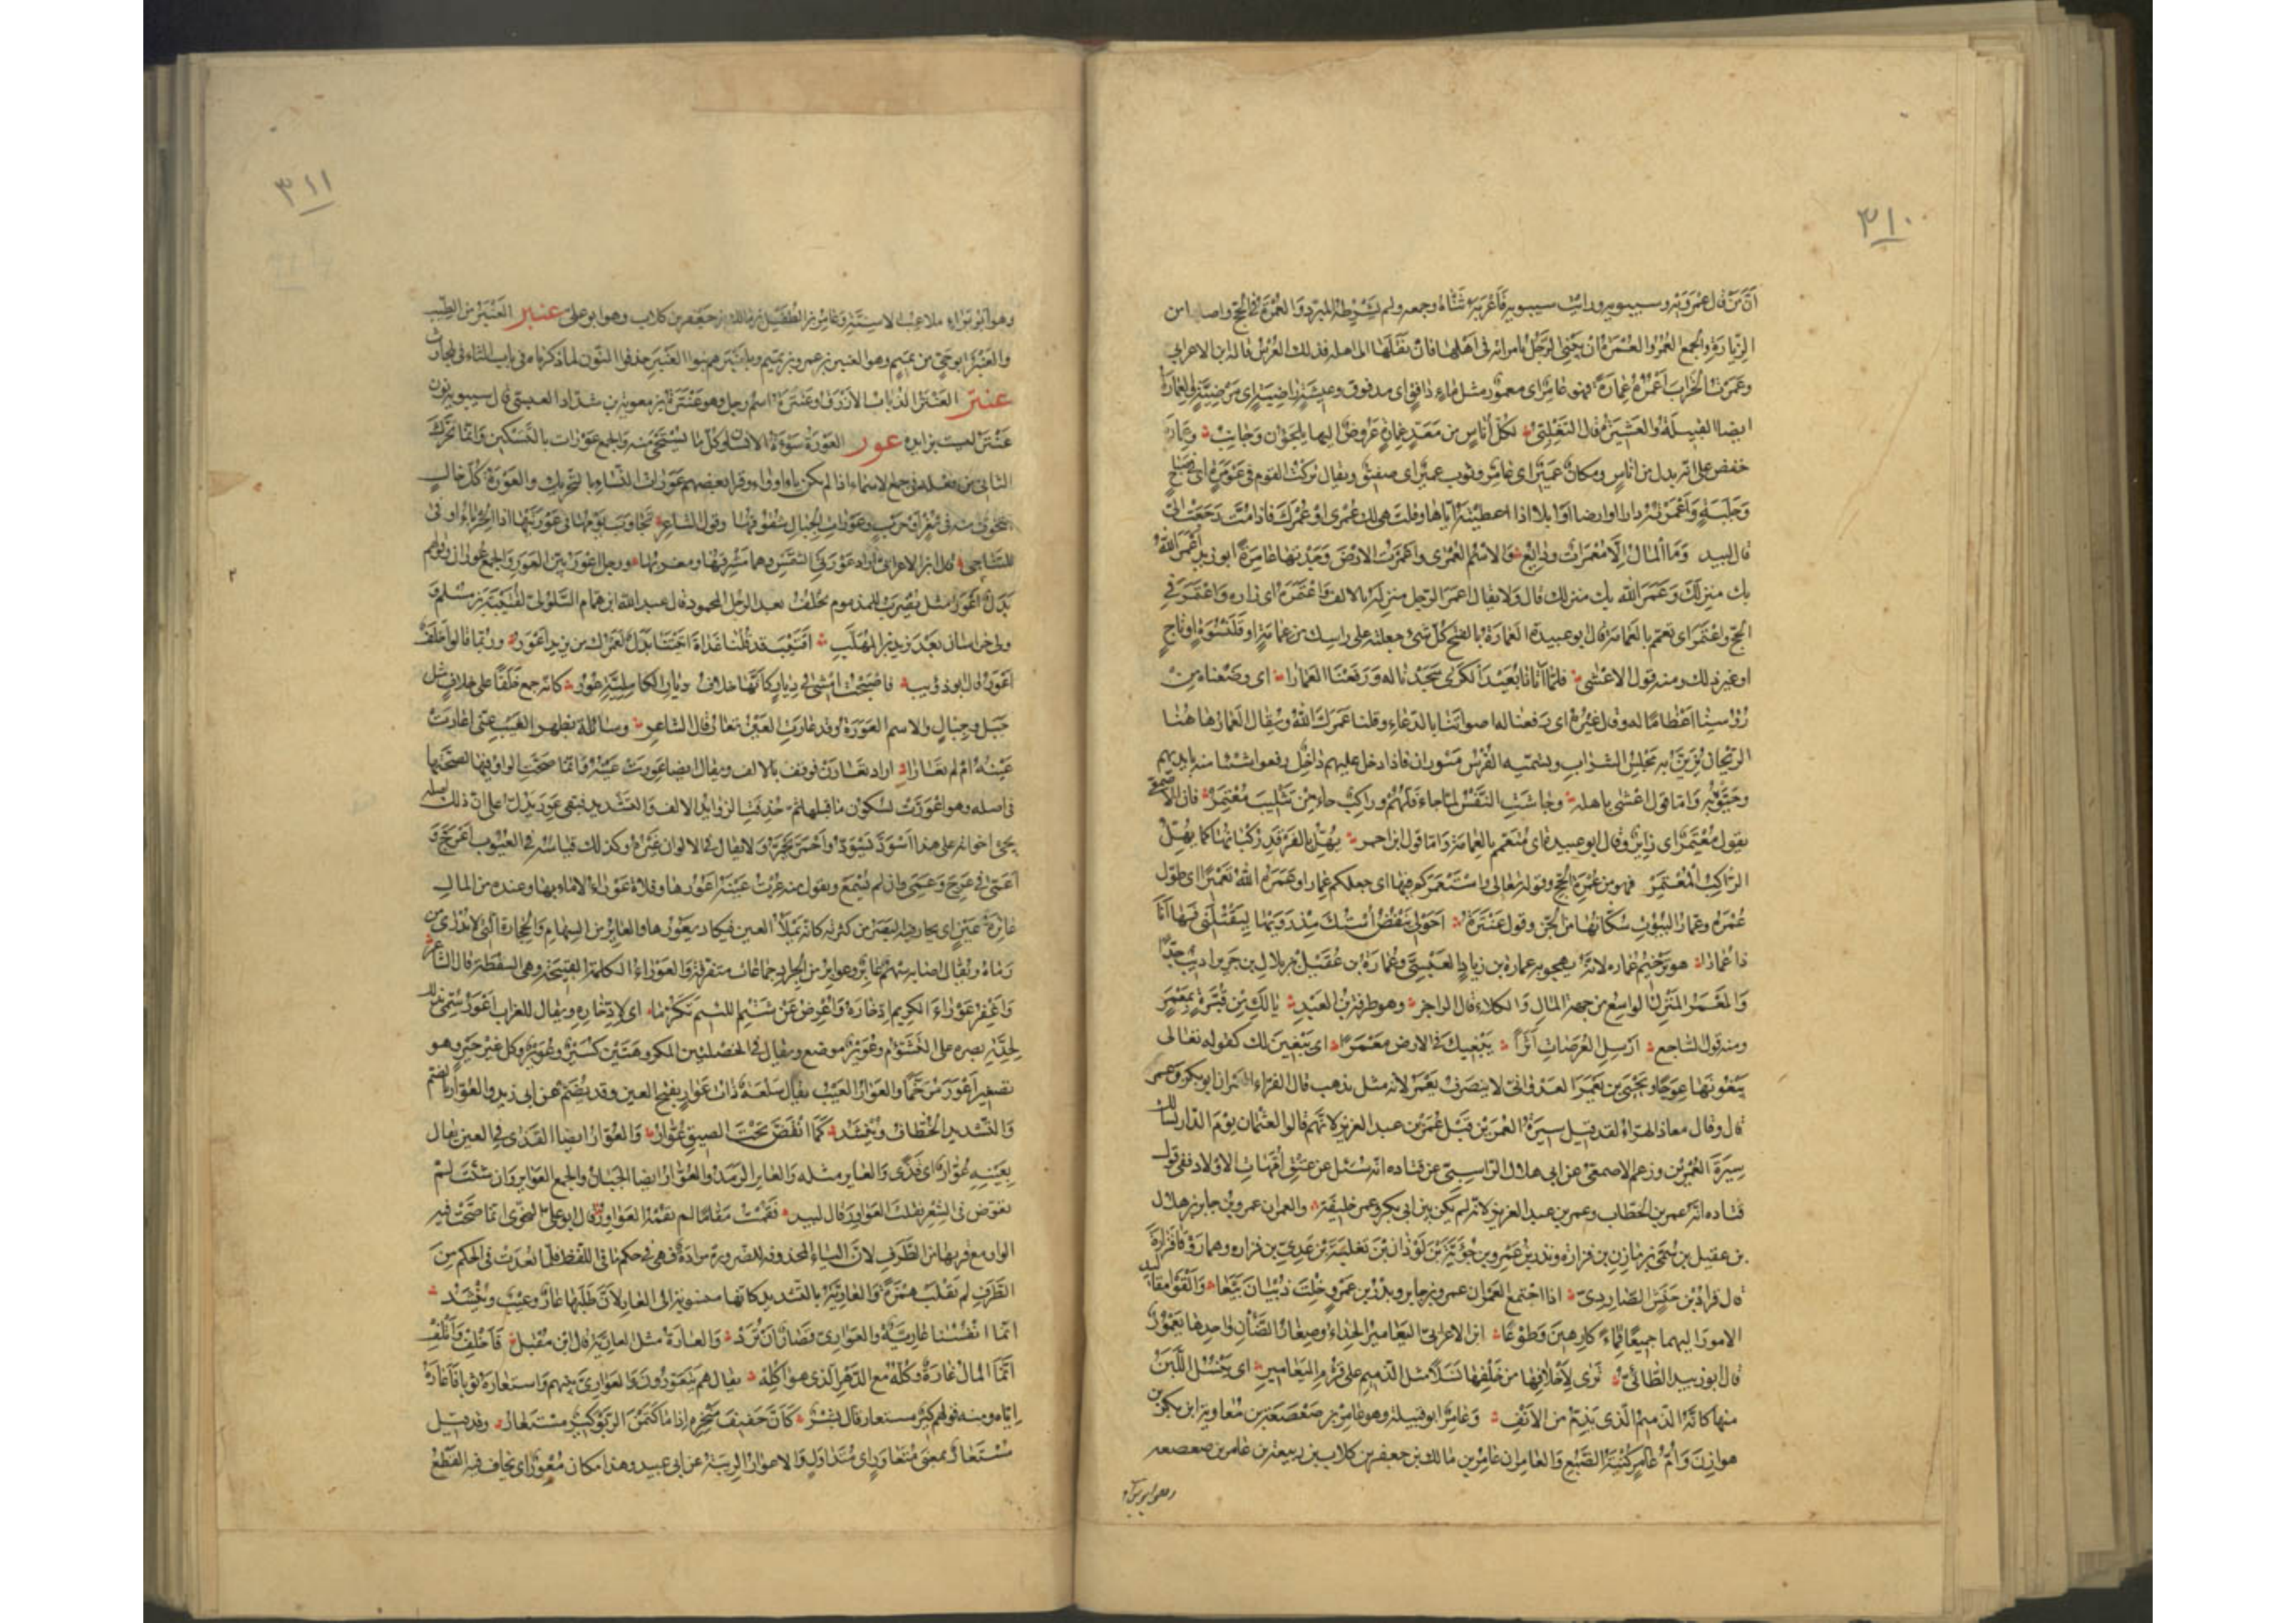 ٣١٠
انّ مَن قال عمرويه وسيبويه ورأيت سيبويه فاعربه ثنّاه وجمعه ولم يشرطه المبرد والعُمرة في الحج واصلها من
الزيارة والجمع العُمَر والعُمرة ان يبني الرجل بامراته في اهلها فان نقلها الى اهله فذلك العُرس قاله ابن الاعرابي
وعمرت الخراب اعمره عمارة فهو عامر اى معمور مثل ماء دافق اى مدفوق وعيشة راضية اى مرضية والعمارة
ايضا القبيلة والعشيرة قال التغلبي لكل اناس من معد عمارة عروض اليها يلجؤن وجانب وعمارة
خفض على انه بدل من اناس ومكان عمير اى عامر وثوب عمير اى صفيق ويقال تركت القوم في عومرة اى صياح
وجلبة واعمرته دارا او ارضا او ابلا اذا اعطيته اياها وقلت هى لك عمرى او عمرك فاذا مت رجعت الىّ
قال لبيد وما المال الا معمرات ودايع والاسم العمرى واعمرت الارض وجدتها عامرة ابو زيد اعمر الله
بك منزلك وعمر الله بك منزلك قال ولا يقال اعمر الرجل منزله بالالف واعتمره اى زاره واعتمر في
الحج واعتمر اى تعمم بالعمامة قال ابو عبيدة العمارة بالفتح كل شئ جعلته على راسك من عمامة او قلنسوة او تاج
او غير ذلك ومنه قول الاعشى فلما اتانا بعيد الكرى سجدنا له ورفعنا العمارا اى وضعناه من
رؤسنا اعظاما له وقال غيره اى رفعنا له اصواتنا بالدعاء وقلنا عمرك الله ويقال العمار هاهنا
الريحان يزين به مجلس الشراب وتسميه الفرس ميوران فاذا دخل عليهم داخل رفعوا شيئا منه بايديهم
وحيوه به واما قول اعشى باهلة وجاشت النفس لما جاء فلهم وراكب جاء من تثليث معتمر فان الاصمعى
يقول معتمر اى زاير وقال ابو عبيدة اى متعمم بالعمامة واما قول ابن احمر يهل بالفرقد ركبانها كما يهل
الراكب المعتمر فهو من عمرة الحج وقوله تعالى واستعمركم فيها اى جعلكم عمارا وعمره الله تعميرا اى طول
عمره وعمار البيوت سكانها من الجن وقول عنترة احولى تنفض استك مذرويها لتقتلنى فها انا
ذا عمارا هو ترخيم عمارة لانه يهجو به عمارة بن زياد العبسى وعمارة بن عقيل بن بلال بن جرير اديب جدا
والمعمر المنزل الواسع من جهة المال والكلاء قال الراجز وهو طرفة بن العبد يالك من قبرة بمعمر
ومنه قول الساجع ارسل العراضات اثرا يبغيك في الارض معمرا اى يبغين لك كقوله تعالى
يبغونها عوجا ويحيى بن يعمر العدوانى لا ينصرف يعمر لانه مثل يذهب قال الفراء العمران ابو بكر وعمر
قال وقال معاذ الهراء لقد قيل سيرة العمرين قبل عمر بن عبد العزيز لانهم قالوا لعثمان يوم الدار نسالك
سيرة العمرين وزعم الاصمعى عن ابى هلال الراسبى عن قتادة انه سئل عن عتق امهات الاولاد ففى قول
قتادة انه عمر بن الخطاب وعمر بن عبد العزيز لانه لم يكن بين ابى بكر وعمر خليفة والعمران عمرو بن جابر بن هلال
بن عقيل بن سمى بن مازن بن فزارة وبدر بن عمرو بن جؤية بن لوذان بن ثعلبة بن عدى بن فزارة وهما روقا فزارة
قال قراد بن حنش الصاردى اذا اجتمع العمران عمرو بن جابر وبدر بن عمرو خلت ذبيان تبعا والقوا مقاليد
الامور اليهما جميعا قماء كارهين وطوعا ابن الاعرابى اليعامير الجداء وصغار الضان واحدها يعمور
قال ابو زبيد الطائى ترى لاخلافها من خلفها نسلا مثل الذميم على قزم اليعامير اى ينسل اللبن
منها كانه الذميم الذى يذم من الانف وعامر ابو قبيلة وهو عامر بن صعصعة بن معاوية بن بكر بن
هوازن وام عامر كنية الضبع والعامران عامر بن مالك بن جعفر بن كلاب بن ربيعة بن عامر بن صعصعه
وهو ابو براء
٣١١
وهو ابو براء ملاعب الاسنة وعامر بن الطفيل بن مالك بن جعفر بن كلاب وهو ابو على عنبر العنبر من الطيب
والعنبر ابو حى من تميم وهو العنبر بن عمرو بن تميم وبلعنبر هم بنوا العنبر حذفوا النون لما ذكرناه في باب الثاء في بلحارث
عنتر العنتر الذباب الازرق وعنترة اسم رجل وهو عنترة بن معوية بن شداد العبسى قال سيبويه نون
عنتر ليست بزايدة عور العورة سوءة الانسان وكل ما يستحيى منه والجمع عورات بالتسكين وانما تحرك
الثانى من فعلة في جمع الاسماء اذا لم يكن ياء او واوا وقرا بعضهم عورات النساء بالتحريك والعورة كل خلل
يتخوف منه في ثغر او حرب وعورات الجبال شقوقها وقول الشاعر تجاوب بومها في عورتيها اذا الحرباء اوفى
للتناجى قال ابن الاعرابى اراد عورتى الشمس وهما مشرقها ومغربها ورجل اعور بين العور والجمع عوران وقولهم
بدل اعور مثل يضرب للمذموم يخلف بعد الرجل المحمود قال عبد الله ابن همام السلولى لقتيبة بن مسلم و
ولى خراسان بعد يزيد بن المهلب اقتيب قد قلنا غداة اتيتنا بدل لعمرك من يزيد اعور وربما قالوا خلف
اعور قال ابو ذؤيب فاصبحت امشى في ديار كانها خلاف ديار الكاملية عور كانه جمع خلفا على خلاف مثل
جبل وجبال والاسم العورة وقد عارت العين تعار قال الشاعر وسائلة بظهر الغيب عنى اعارت
عينه ام لم تعارا اراد تعارن فوقف بالالف ويقال ايضا عورت عينه وانما صحت الواو فيها لصحتها
في اصله وهو اعورت لسكون ما قبلها ثم حذفت الزوايد الالف والتشديد فبقى عور يدل على ان ذلك اصله
مجئ اخواته على هذا اسود يسود واحمر يحمر ولا يقال في الالوان غيره وكذلك قياسه في العيوب اعرج و
اعمى في عرج وعمى وان لم يسمع وتقول منه عرت عينه اعورها وفلاة عوراء لا ماء بها وعنده من المال
عائرة عين اى يحار فيه البصر من كثرته كانه يملأ العين فيكاد يعورها والعاير من السهام والحجارة الذى لا يدرى من
رماه ويقال اصابه سهم عاير وعواير من الجراد جماعات متفرقة والعوراء الكلمة القبيحة وهى السقطة قال الشاعر
واغفر عوراء الكريم ادخاره واعرض عن شتم اللئيم تكرما اى لادخاره ويقال للغراب اعور سمى بذلك
لحدة بصره على التشؤم وعوير موضع ويقال في الخصلتين المكروهتين كسير وعوير وكل غير خير وهو
تصغير اعور مرخما والعوار العيب يقال سلعة ذات عوار بفتح العين وقد يضم عن ابى زيد والعوار بالضم
والتشديد الخطاف وينشد كما انقض تحت الصيق عوار والعوار ايضا القذى في العين يقال
بعينه عوار اى قذى والعاير مثله والعاير الرمد والعوار ايضا الجبان والجمع العواوير وان شئت لم
تعوض في الشعر فقلت العواور قال لبيد فقمت مقاما لم تقمه العواور قال ابو على النحوى انما صحت فيه
الواو مع قربها من الطرف لان الياء المحذوفة للضرورة مرادة فهى في حكم ما في اللفظ فلما بعدت في الحكم من
الطرف لم تقلب همزة والعارية بالتشديد كانها منسوبة الى العار لان طلبها عار وعيب وينشد
انما انفسنا عارية والعوارى قصار ان ترد والعارة مثل العارية قال ابن مقبل فاخلف واتلف
انما المال عارة وكله مع الدهر الذى هو اكله يقال هم يتعورون العوارى بينهم واستعاره ثوبا فاعاره
اياه ومنه قولهم كير مستعار قال بشر كان حفيف منخره اذا ما كتمن الربو كير مستعار وقد قيل
مستعار بمعنى متعاور اى متداول والاعوار الريبة عن ابى عبيد وهذا مكان معور اى يخاف فيه القطع